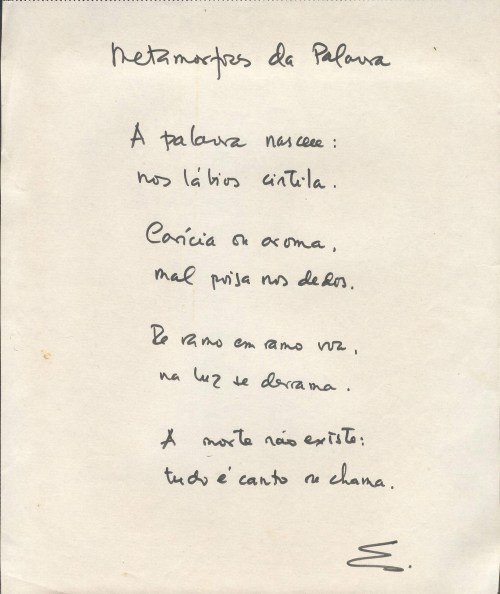 Metamorfoses da Palavra
A palavra nasceu:
nos lábios cintila.
Carícia ou aroma,
mal poisa nos dedos.
De ramo em ramo voa,
na luz se derrama.
A morte não existe:
tudo é canto ou chama.
E.